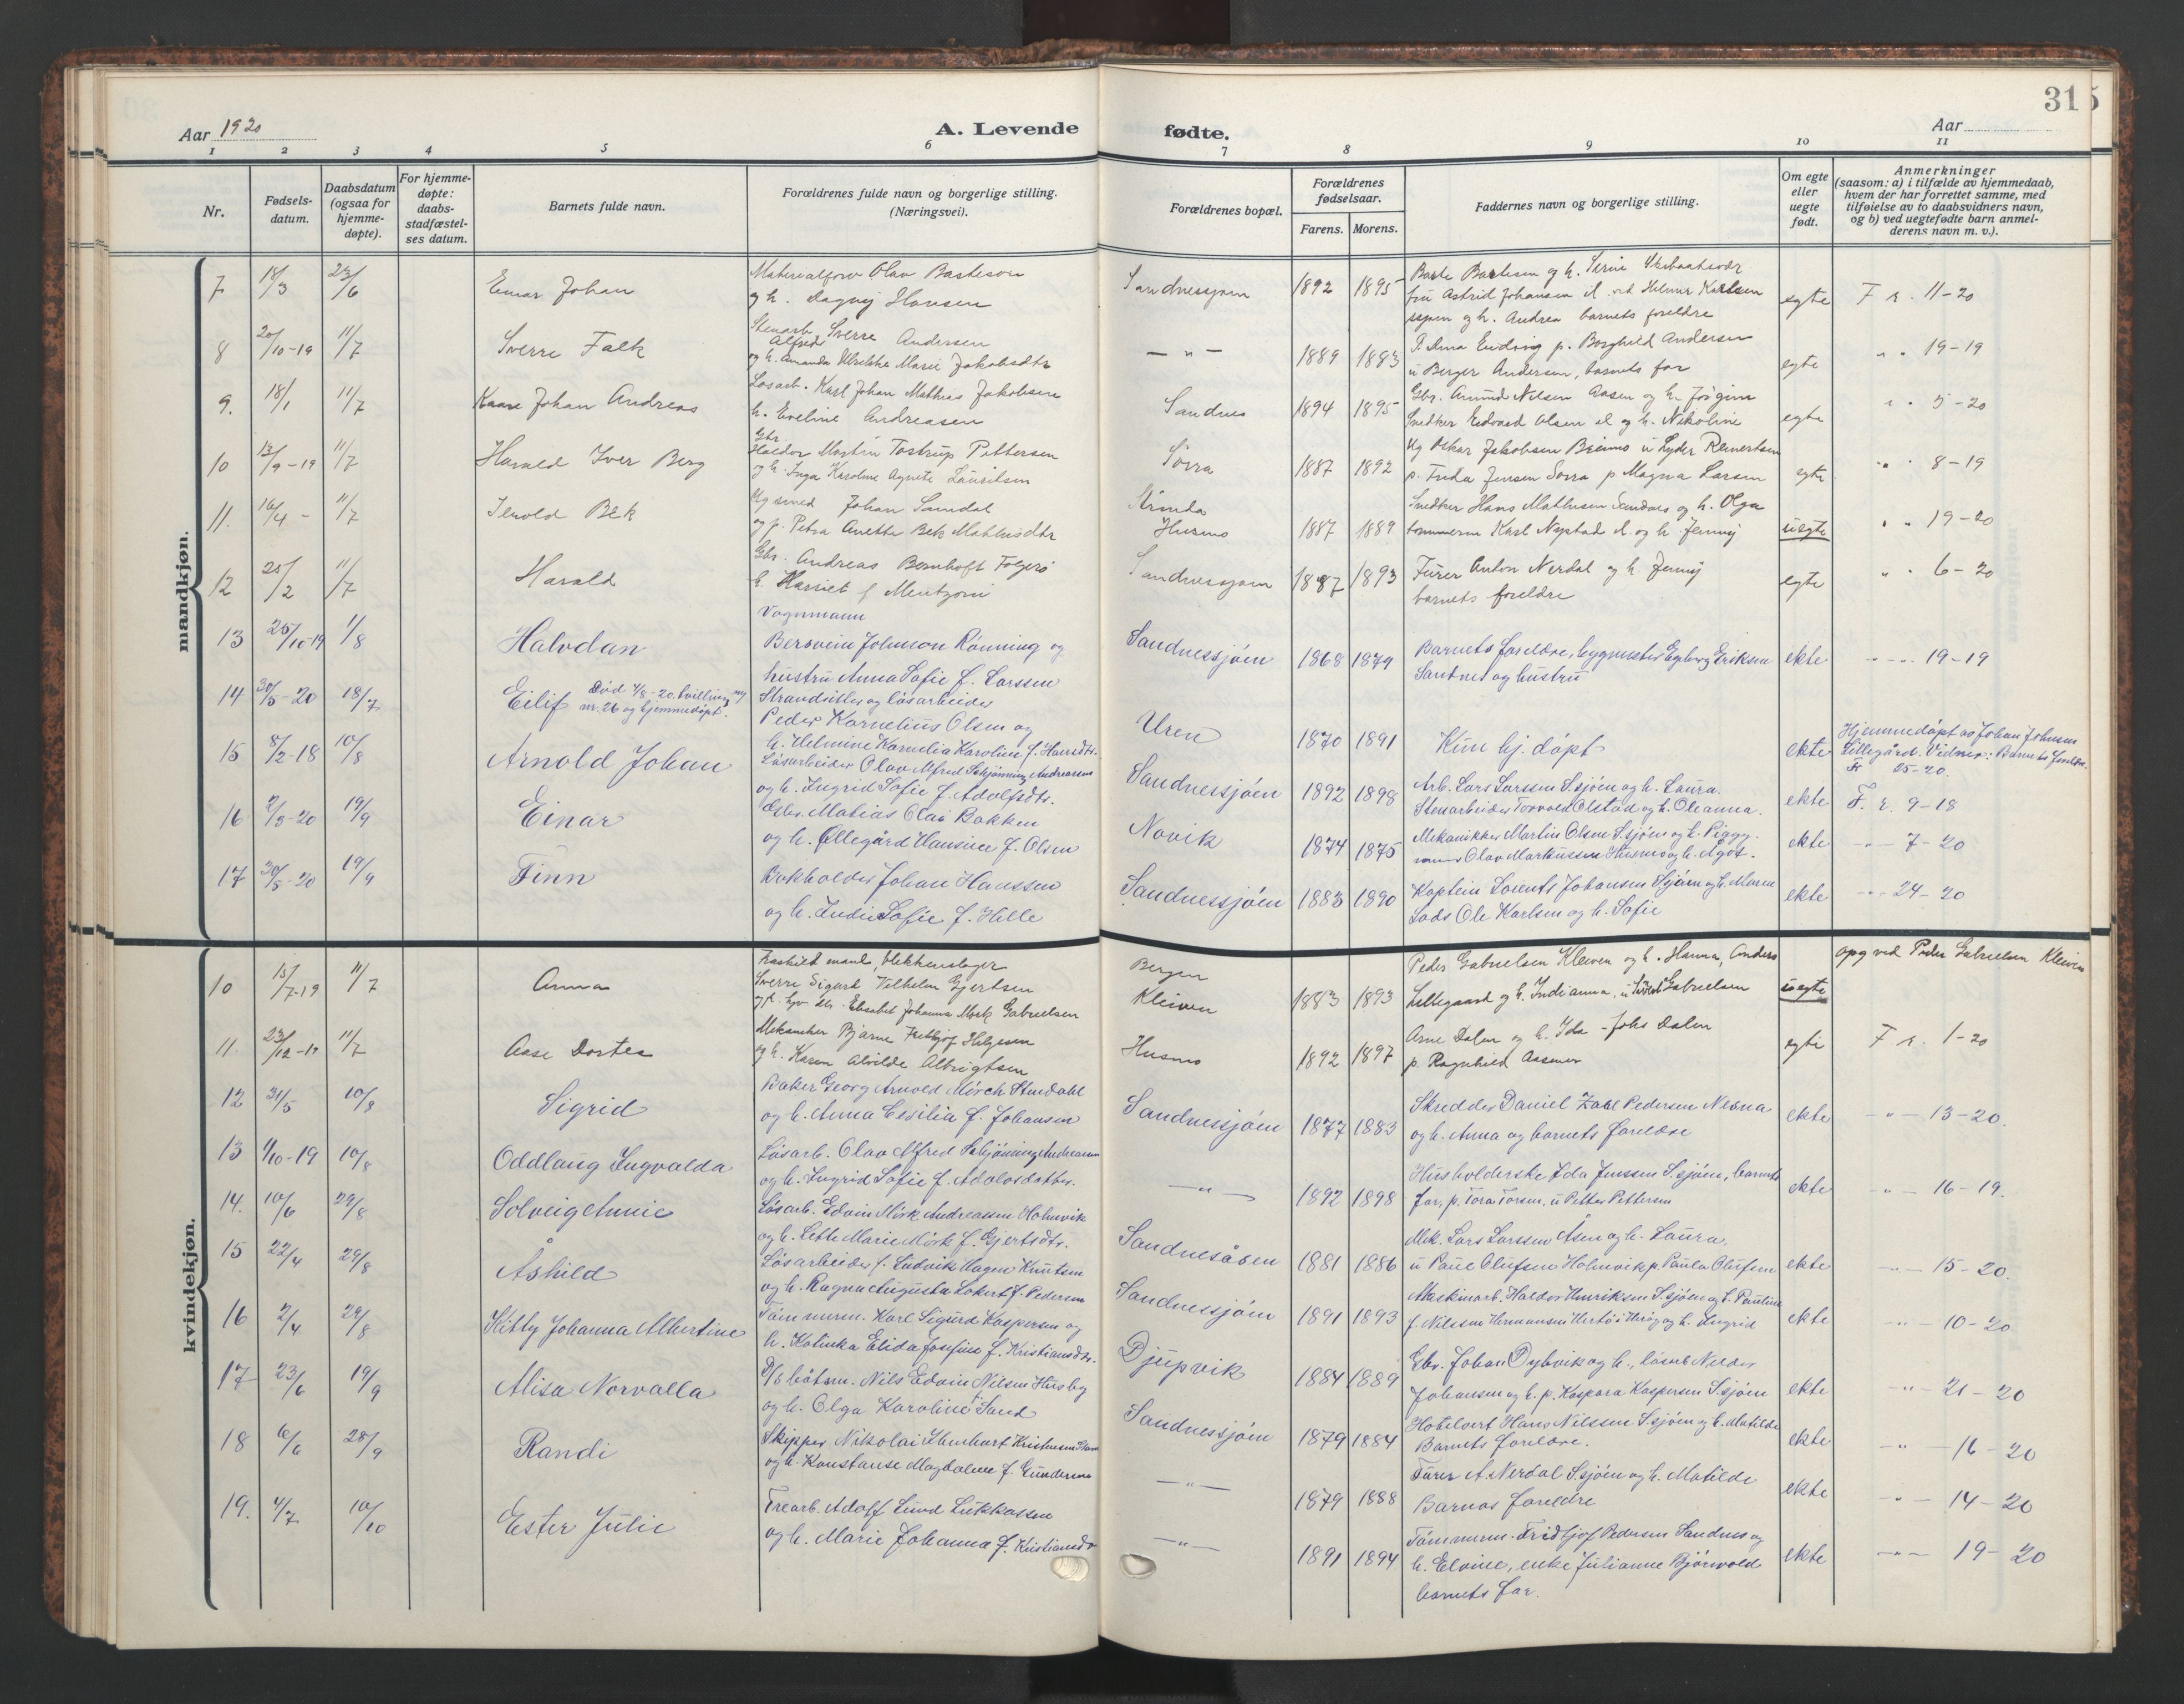 31
Aar 1920
A. Levende fødte.
Aar
1 2 3 4 5 6 7 8 9 10 11
Nr.
Fødsels-
datum.
Daabsdatum
(ogsaa for
hjemme-
døpte).
For hjemme-
døpte:
daabs-
stadfæstel-
ses datum.
Barnets fulde navn.
Forældrenes fulde navn og borgerlige stilling.
(Næringsvei).
Forældrenes bopæl.
Forældrenes
fødselsaar.
Farens. Morens.
Faddernes navn og borgerlige stilling.
Om egte
eller
uegte
født.
Anmerkninger
(saasom: a) i tilfælde av hjemmedaab,
hvem der har forrettet samme, med
tilføielse av to daabsvidners navn,
og b) ved uegtefødte barn anmel-
derens navn m. v.).
mandkjøn.
7 18/3 23/6 Einar Johan
Olav Basteson
og h. Dagny Hansen
Sandnessjøen 1892 1895
fru Astrid Johansen
og h. Andrea barnets foreldre
egte F. r. 11-20
8 20/10-19 11/7 Sverre Falk
Stenarb. Sverre Andersen
Alfred
og h. Amanda Ulrikke Marie Jakobsdtr
— " — 1889 1883
p. Borghild Andersen
u Berger Andersen, barnets far
egte " " 19-19
9. 18/1 11/7 Kaare Johan Andreas
Løsarb. Karl Johan Mathias Jakobsen
h. Eveline Andreasen
Sandnes 1894 1895
Gbr. Amund Nilsen Aasen og h. Jørgine
Snedker Edvard Olsen og h. Nikoline
egte " " 5-20
10 13/9-19 11/7 Harald Iver Berg
Gbr.
Haldor Martin Tostrup Pettersen
og h. Inga Karoline Agnete Lauritsen
Sørra 1887 1892
Ug Oskar Jakobsen u Lyder Reinertsen
p. Frida Jensen Sørra p Magna Larsen
egte " " 8-19
11. 16/4 - 11/7 Bek
Ug smed Johan Sandal
og p. Petra Anetta Bek Mathisdtr
Husmo 1887 1889
Snedker Hans Mathisen Sandnes og h. Olga
tømmerm Karl Nystad og h Jenny
uegte " " 19-20
12 25/2 11/7 Harald
Gbr. Andreas Bernhoft Folgerø
h. Harriet f Mentzoni
Sandnessjøen 1887 1893
Fürer Anton Nerdal og h Jenny
barnets foreldre
egte " " 6-20
13 25/10-19 1/8 Halvdan
Vognmann
Bersvein Johnson Rønning og
hustru Anna Sofie f. Larssen
Sandnessjøen 1868 1879
Barnets foreldre, bygmester Egberg Eriksen
Sandnes og hustru
ekte " " 19-19
14 30/5-20 18/7 Eilif Død 4/8-20. tvilling m/
nr. 26 og hjemmedøpt.
Strandsitter og løsarbeider
Peder Kornelius Olsen og
h. Helmine Kornelia Karoline f. Hansdtr.
Uren 1870 1891
Kun hj. døpt
ekte Hjemmedøpt av Johan Johnsen
Lillegård. Vidner: Barnets foreldre.
Fr 25-20.
15 8/2-18 10/8 Arnold Johan
Løsarbeider Olav Alfred Schjønning Andreassen
og h. Ingrid Sofie f. Adolfsdtr.
Sandnessjøen 1892 1898
Arb. Lars Larssen S.sjøen og h. Laura.
Stenarbeider Torvald Olstad og h. Oleanna.
ekte F. r. 9-18
16 2/3-20 19/9 Einar
Gbr. Matias Olai Bakken
og h. Øllegård Hansine f. Olsen
Novik 1874 1875
Mekanikker Martin Olsen S.sjøen og h. Piggy.
Olav Markussen Husmo og h. Ågot.
ekte — " — 7-20
17 30/5-20 19/9 Finn
Bokholder Johan Hanssen
og h. Indie Sofie f. Helle
Sandnessjøen 1883 1890
Kaptein Lorents Johansen S.sjøen og h. Maren
Lods Ole Karlsen og h. Sofie
ekte — " — 24-20
kvindekjøn.
10 15/7-19 11/7 Anna
Fraskilt mand, blekkenslager
Sverre Sigurd Vilhelm Gjertsen
Elisabet Johanna Mørk Gabrielsen
Bergen
Kleiven 1883 1893
Peder Gabrielsen Kleiven og h. Hanna, Anders
Lillegaard og h. Indianna, u Sivert Gabrielsen
uegte opg ved Peder Gabrielsen Kleiven
11 23/12-19 11/7 Aase Dortea
Mekaniker Bjarne Fridtjof Helgesen
og h. Karen Alvilde Albrigtsen
Husmo 1892 1897
Arne Dalen og h. Ida - Johs Dalen
p. Ragnhild Aasener
egte F. r. 1-20
12 31/5 10/8 Sigrid
Baker Georg Arnold Mørch Stendahl
og h. Anna Cesilie f. Johansen
Sandnessjøen 1877 1883
Skredder Daniel Zahl Pedersen Nesna
og h. Anna og barnets foreldre
ekte — " — 13-20.
13 1/10-19 10/8 Oddlaug Ingvalda
Løsarb. Olav Alfred Schjønning Andreassen
og h. Ingrid Sofie f. Adolvsdatter.
— " — 1892 1898
Husholderske Ida Jenssen S.sjøen, barnets
far, p. Tora Torsen, u Petter Pettersen
ekte — " — 16-19.
14. 10/6 29/8 Solveig Annie
Løsarb. Edvin Mørk Andreassen Holmvik
og h. Lette Marie Mørk f. Gjertsdtr.
Sandnesåsen 1881 1886
Mek. Lars Larssen Åsen og h. Laura,
u Paul Olufsen Holmvik p. Paula Olufsen
ekte — " — 15-20.
15 22/4 29/8 Åshild
Løsarbeider f. Ludvik Hagen Knutsen
og h. Ragna Augusta Lokert f. Pedersen
Sandnessjøen 1891 1893
Maskinarb. Haldor Henriksen S.sjøen og h. Pauline
f. Nilssen Hermansen Hertø i Herøy og h. Ingrid
ekte — " — 10-20
16 2/4 29/8 Kitty Johanna Albertine
Tømmerm. Karl Sigurd Kaspersen og
h. Katinka Elida Josefine f. Kristiansdtr.
Djupvik 1884 1889
Gbr. Johan Dybvik og h., løsarb Nilder
Johansen og h. p. Kaspara Kaspersen S.sjøen
ekte — " — 21-20
17 23/6 19/9 Alisa Norvalla
D/S båtsm. Nils Edvin Nilsen Husby
og h. Olga Karoline Sand
Sandnessjøen 1879 1884
Hotelvert Hans Nilssen S.sjøen og h. Matilde
Barnets foreldre.
ekte — " — 16-20
18 6/6 28/9 Randi
Skipper Nikolai Ebenhart Kristensen
og h. Konstanse Magdalene f. Gundersen
— " — 1879 1888
Fürer A. Nerdal S.sjøen og h. Matilde
Barnas foreldre
ekte — " — 14-20
19. 4/7 10/10 Ester Julie
Trearb. Adolf Lund Lukkassen
og h. Marie Johanna f. Kristiansd
— " — 1891 1894
Tømmerm. Fridtjof Pedersen Sandnes og
h. Elvine, enke Julianne Bjørvold
barnets far.
ekte — " — 19-20